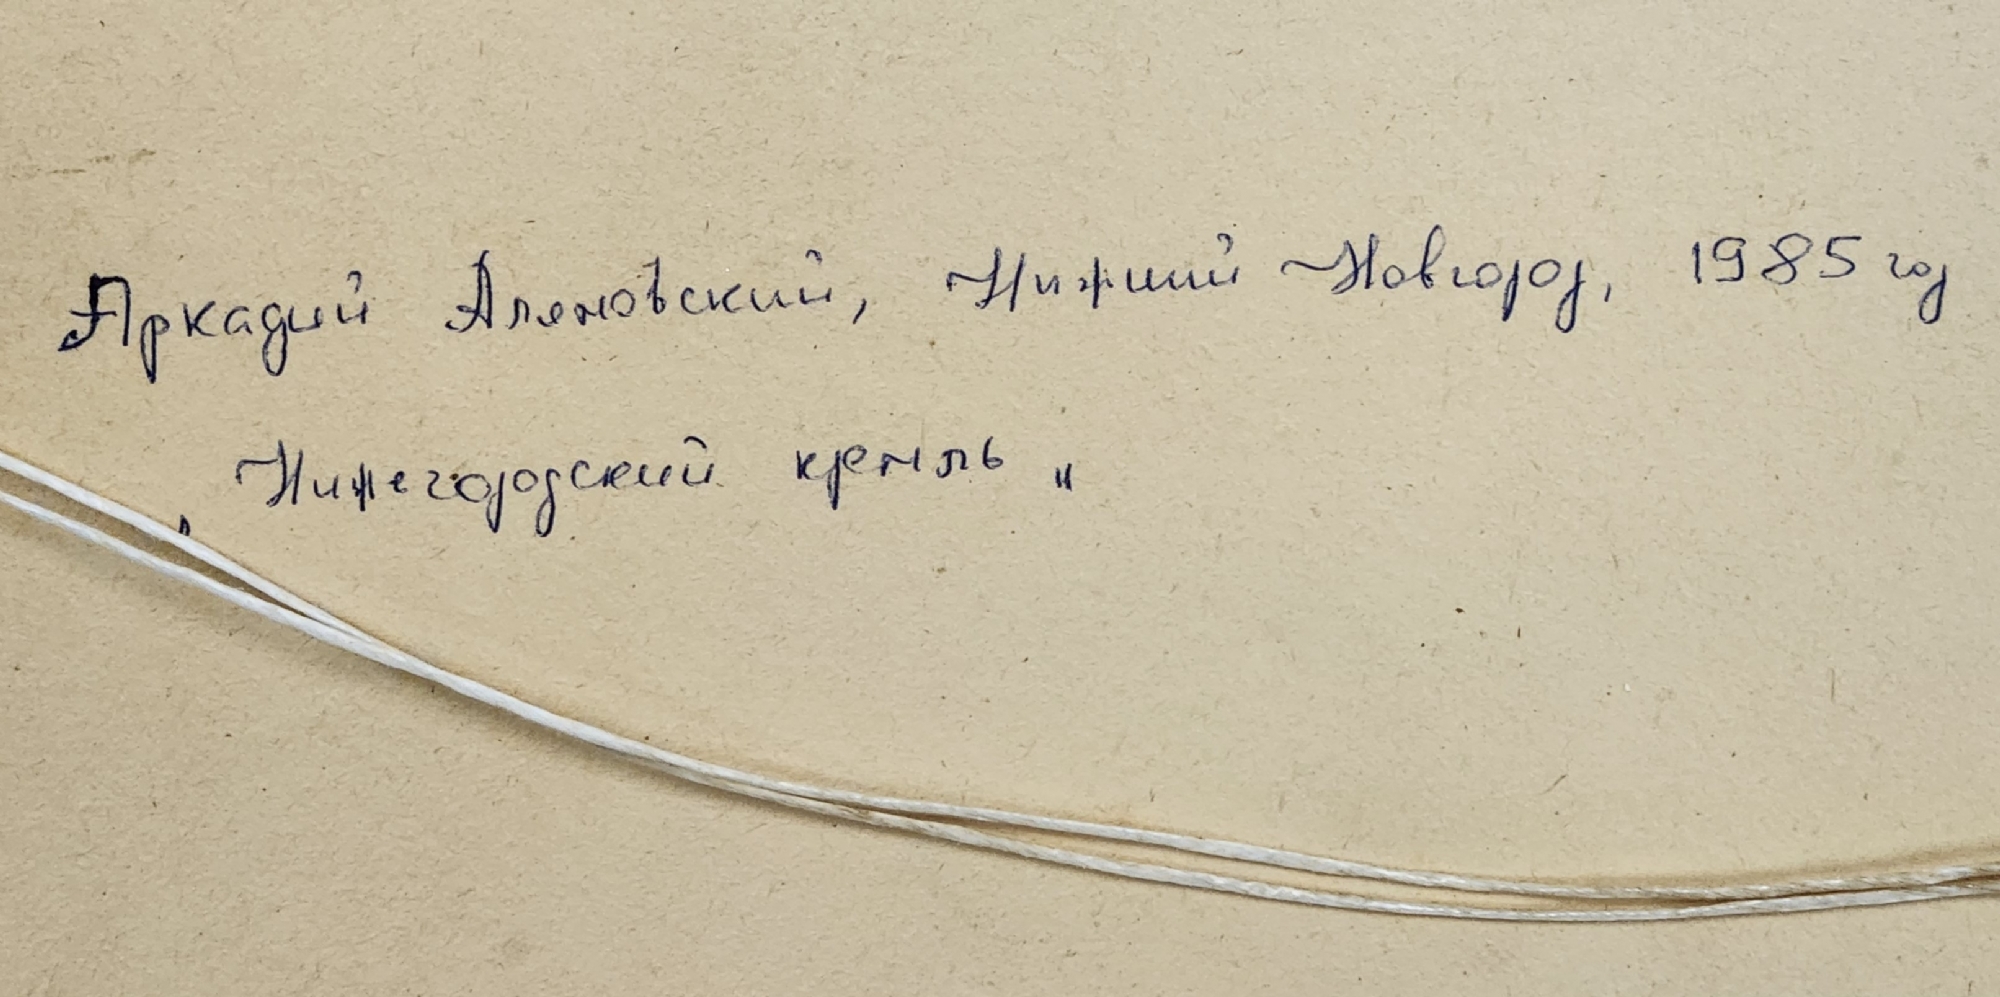 Аркадий Аляновский, Нижний Новгород, 1985 год
„ Нижегородский кремль "